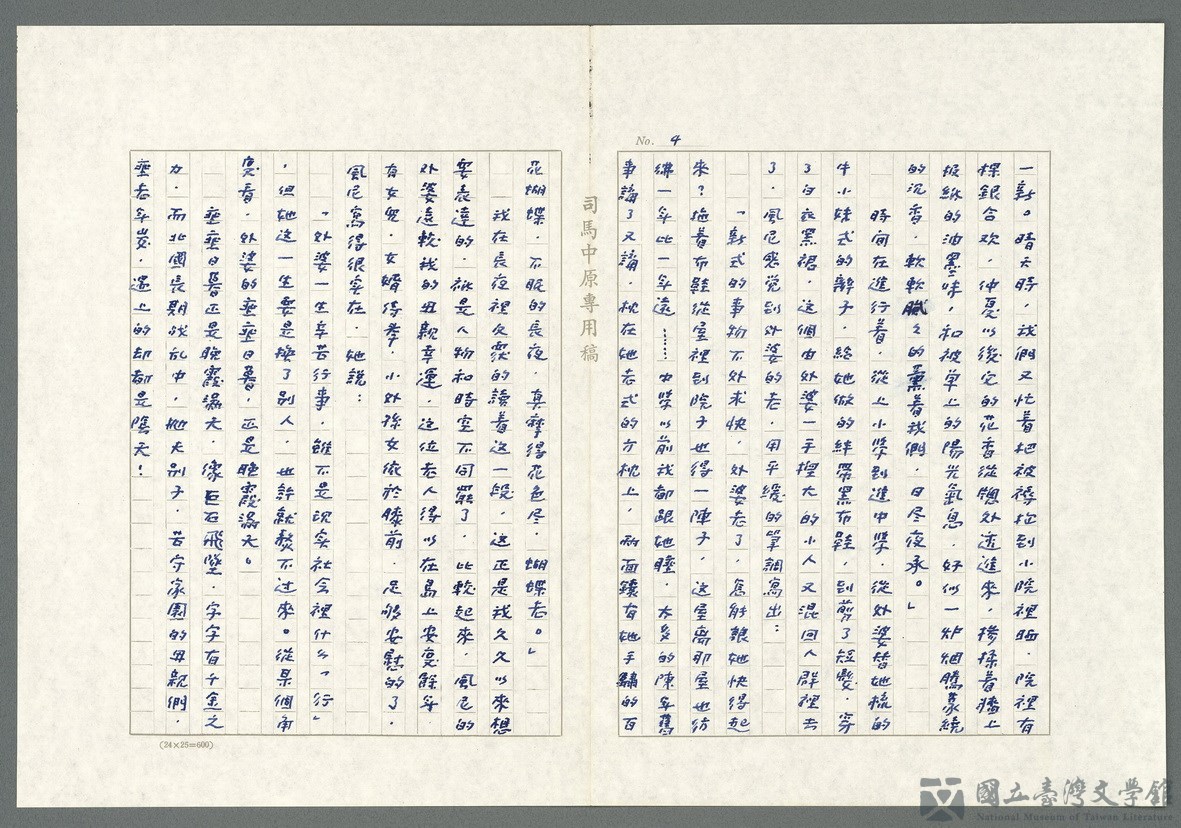 No. 4
一新。晴天時，我們又忙着把被褥抱到小院裡晒，院裡有
棵銀合欢，仲夏以後它的花香從牕外透進來，摻揉着牆上
板紙的油墨味，和被單上的陽光氣息，好似一炉烟騰蒙繞
的沉香，軟軟膩膩的薰着我們，日尽夜承。」
時间在進行着，從上小學到進中學，從外婆替她梳的
牛小妹式的辮子，給她做的絆帶黑布鞋，到剪了短髮，穿
了白衣黑裙，这個由外婆一手捏大的小人又混囘人群裡去
了，風尼感觉到外婆的老，用平緩的筆調寫出：
「新式的事物不外求快，外婆老了，怎能跟她快得起
來？拖着布鞋從屋裡到院子也得一陣子，这屋离那屋也彷
彿一年比一年遠……中學以前我都跟她睡，太多的陳年舊
事講了又講，枕在她老式的方枕上，兩面鑲有她手綉的百
司馬中原專用稿
花蝴蝶，不眠的長夜，真摩得花色尽，蝴蝶老。」
我在長夜裡久深的讀着这一段，这正是我久久以來想
要表達的，祇是人物和時空不同罷了，比較起來，風尼的
外婆遠較我的母親幸運，这位老人得以在島上安度餘年，
有女兒，女婿侍奉，小外孫女依於膝前，足够安慰的了，
風尼寫得很实在，她說：
「外婆一生辛苦行事，雖不是现实社会裡什么「行」
，但她这一生要是換了別人，也許就熬不过來。從某個角
度看，外婆的垂垂日暮，正是晚霞滿天。
垂垂日暮正是晚霞滿天，像巨石飛墜，字字有千金之
力，而北國長期战乱中，抛夫別子，苦守家園的母親們，
垂老年歲，遇上的却都是陰天！
(24×25=600)
國立臺灣文學館
National Museum of Taiwan Literature